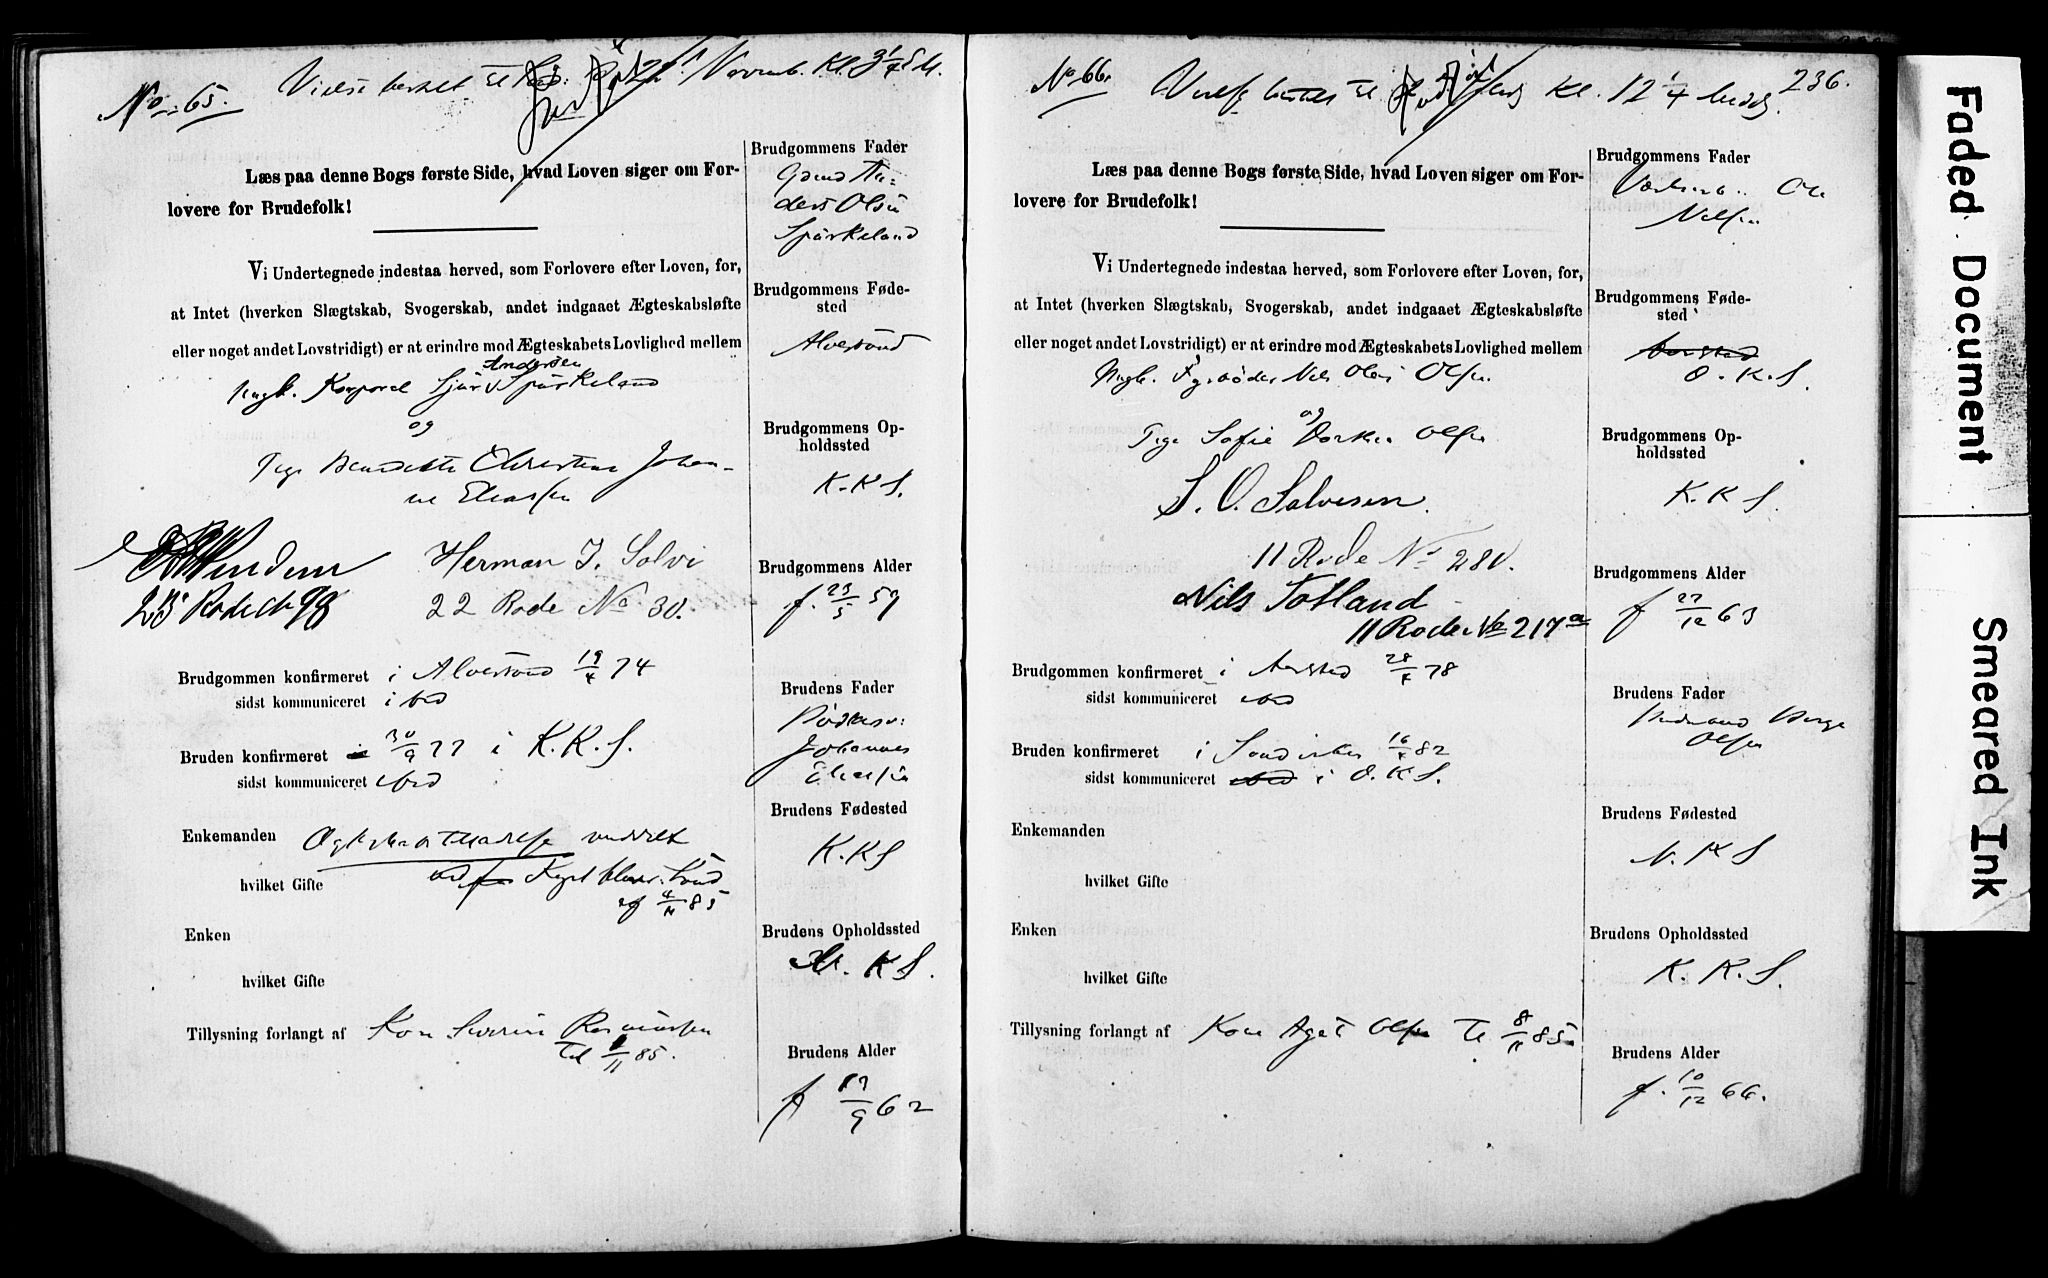 No 65.
Vielse
Novemb. Kl. 3 1/4
Læs paa denne Bogs første Side, hvad Loven siger om For-
lovere for Brudefolk!
Vi Undertegnede indestaa herved, som Forlovere efter Loven, for,
at Intet (hverken Slægtskab, Svogerskab, andet indgaaet Ægteskabsløfte
eller noget andet Lovstridigt) er at erindre mod Ægteskabets Lovlighed mellem
Andersen
Ungk. Korporal Sjur Spurkeland
og
Pige Benedikte Christine Johan-
ne Eliassen
Herman J. Solvi
23 Rode No 98
22 Rode No 30.
Brudgommen konfirmeret i Alversund 19/4 74
sidst kommuniceret ibid
Bruden konfirmeret 30/9 77 i K. K. S.
sidst kommuniceret ibid
Enkemanden
hvilket Gifte
4/11 85
Enken
hvilket Gifte
Tillysning forlangt af Kone Severine Rasmussen
til /11 85.
Brudgommens Fader
Gaardm. An-
ders Olsen
Spurkeland
Brudgommens Føde-
sted
Alversund
Brudgommens Op-
holdssted
K. K. S.
Brudgommens Alder
f. 23/5 57
Brudens Fader
Johannes
Eliassen
Brudens Fødested
K. K. S
Brudens Opholdssted
K S.
Brudens Alder
f 17/9 62
No 66.
236.
Kl. 12 1/4 Middg.
Læs paa denne Bogs første Side, hvad Loven siger om For-
lovere for Brudefolk!
Vi Undertegnede indestaa herved, som Forlovere efter Loven, for,
at Intet (hverken Slægtskab, Svogerskab, andet indgaaet Ægteskabsløfte
eller noget andet Lovstridigt) er at erindre mod Ægteskabets Lovlighed mellem
Ungk. Fyrbøder Nils Olai Olsen
og
Pige Sofie Olsen
S. O. Salvesen.
11 Rode No 280.
Nils Totland
11 Rode No 217a
Brudgommen konfirmeret i Aarstad 28/4 78
sidst kommuniceret ibid
Bruden konfirmeret i Sandviken 16/4 82
sidst kommuniceret ibid i D. K. S.
Enkemanden
hvilket Gifte
Enken
hvilket Gifte
Tillysning forlangt af Kone Aget Olsen til 8/11 85
Brudgommens Fader
Ole
Nilsen
Brudgommens Føde-
sted
Aarstad
D. K. S.
Brudgommens Op-
holdssted
K. K S
Brudgommens Alder
f 27/12 63
Brudens Fader
Børge
Olsen
Brudens Fødested
N. K S
Brudens Opholdssted
K. K. S.
Brudens Alder
f. 10/12 66.
Faded Document
Smeared Ink